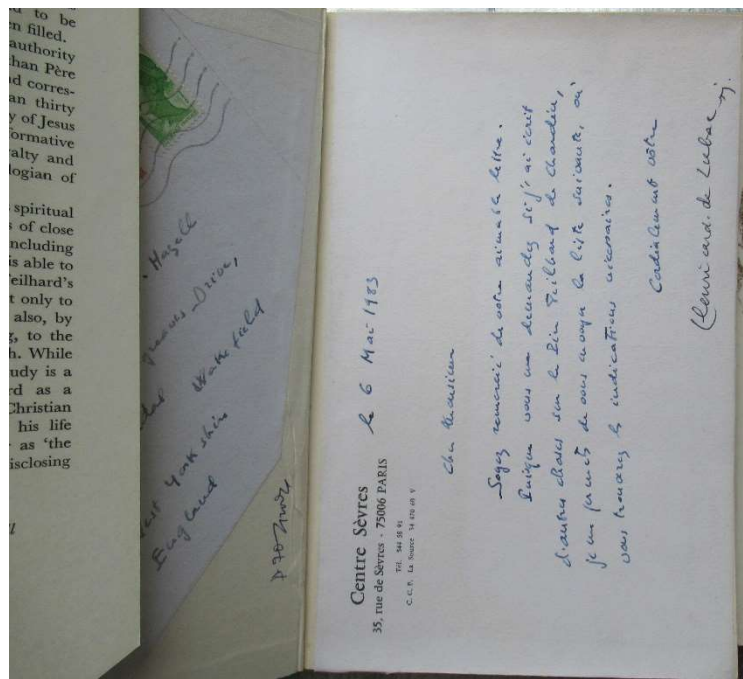 d to be
n filled.
authority
han Père
d corres-
an thirty
y of Jesus
ormative
alty and
logian of
spiritual
s of close
ncluding
is able to
eilhard's
t only to
also, by
g, to the
h. While
udy is a
rd as a
Christian
his life
as 'the
isclosing
Hazell
greaves Drive,
Wakefield
West Yorkshire
England
Centre Sèvres
35, rue de Sèvres - 75006 PARIS
Tél. 544 58 91
C.C.P. La Source 34
le 6 Mai 1983
Cher Monsieur
Soyez remercié de votre aimable lettre.
Puisque vous me demandez si j'ai écrit
d'autres choses sur le Père Teilhard de Chardin,
je me permets de vous envoyer la liste suivante, où
vous trouverez les indications nécessaires.
Cordialement vôtre
Henri card. de Lubac, sj.